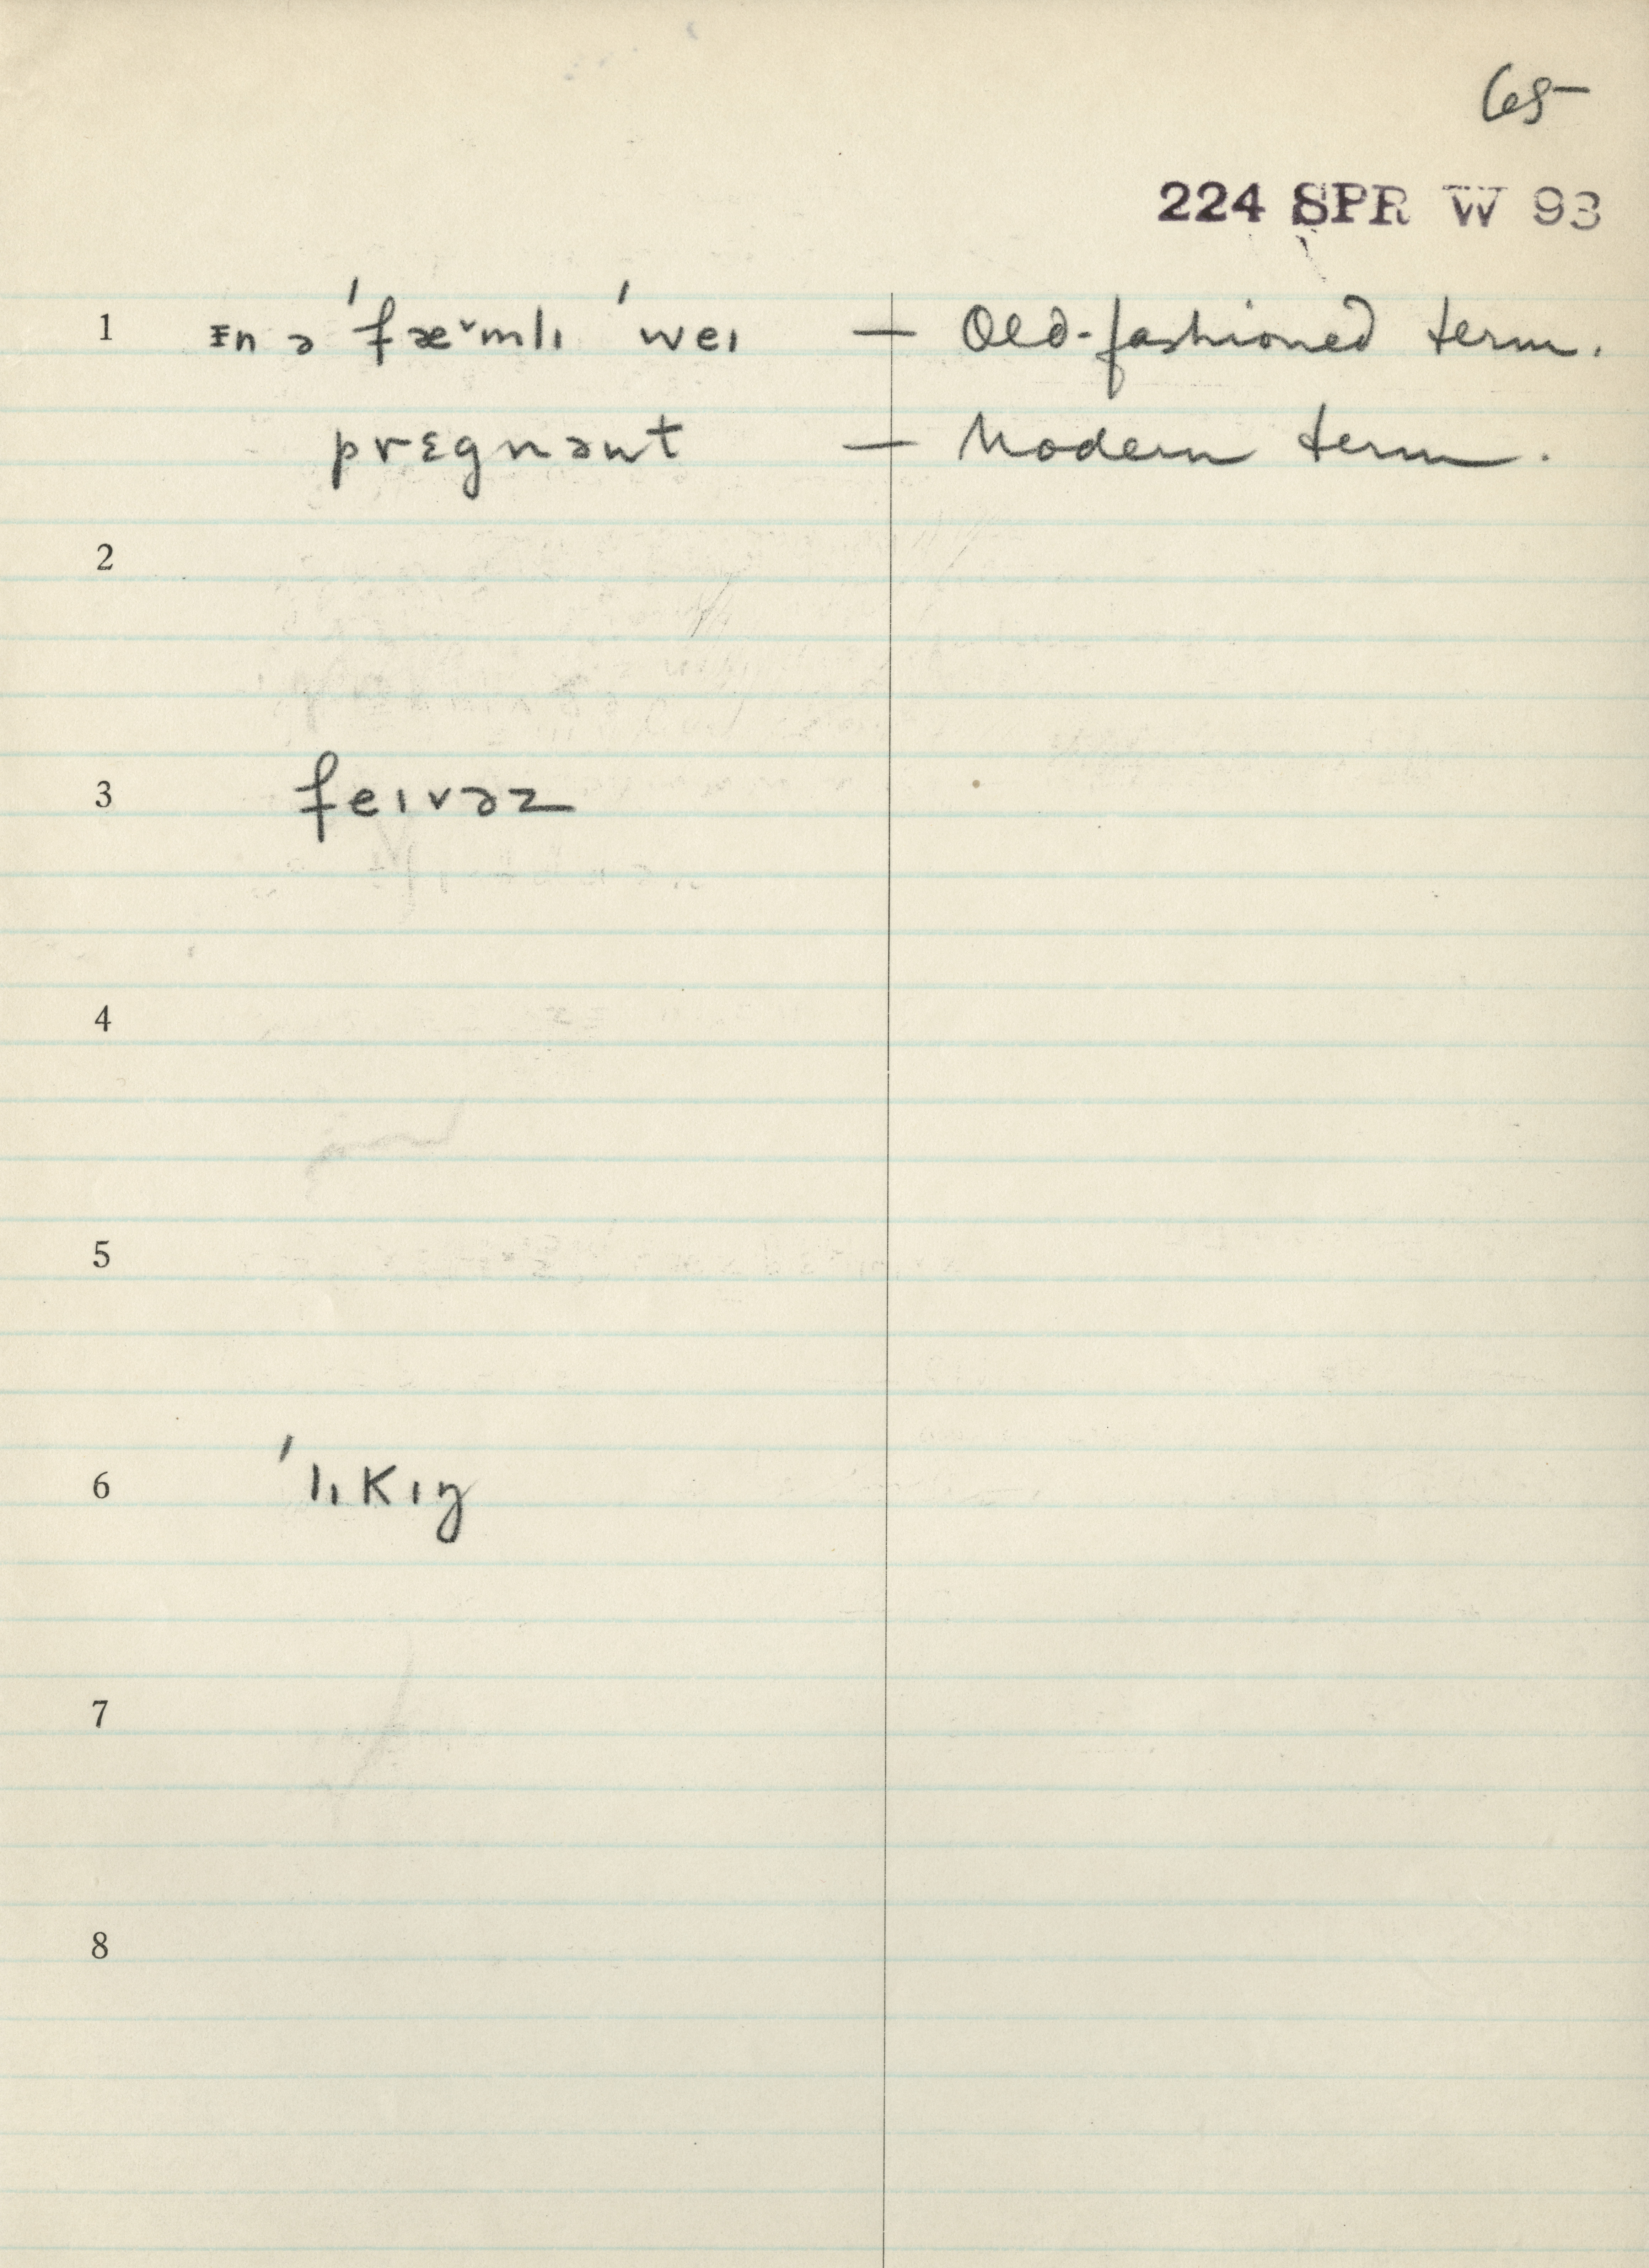 65
224 SPR W 93
1 ᵻn ə 'fæ˅mlɪ 'weɪ — Old-fashioned term.
prɛgnənt — Modern term.
2
3 feɪvəz
4
5
6 'lɪkɪŋ
7
8